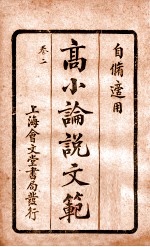 自備適用
高小論說文範
卷二
上海會文堂書局發行